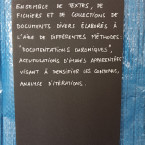 ENSEMBLE DE TEXTES, DE
FICHIERS ET DE COLLECTIONS DE
DOCUMENTS DIVERS ÉLABORÉS À
L'AIDE DE DIFFÉRENTES MÉTHODES:
"DOCUMENTATIONS CHRONIQUES",
ACCUMULATIONS D'IMAGES APPARENTÉES
VISANT À DENSIFIER LES CONTENUS,
ANALYSE D'ITÉRATIONS.